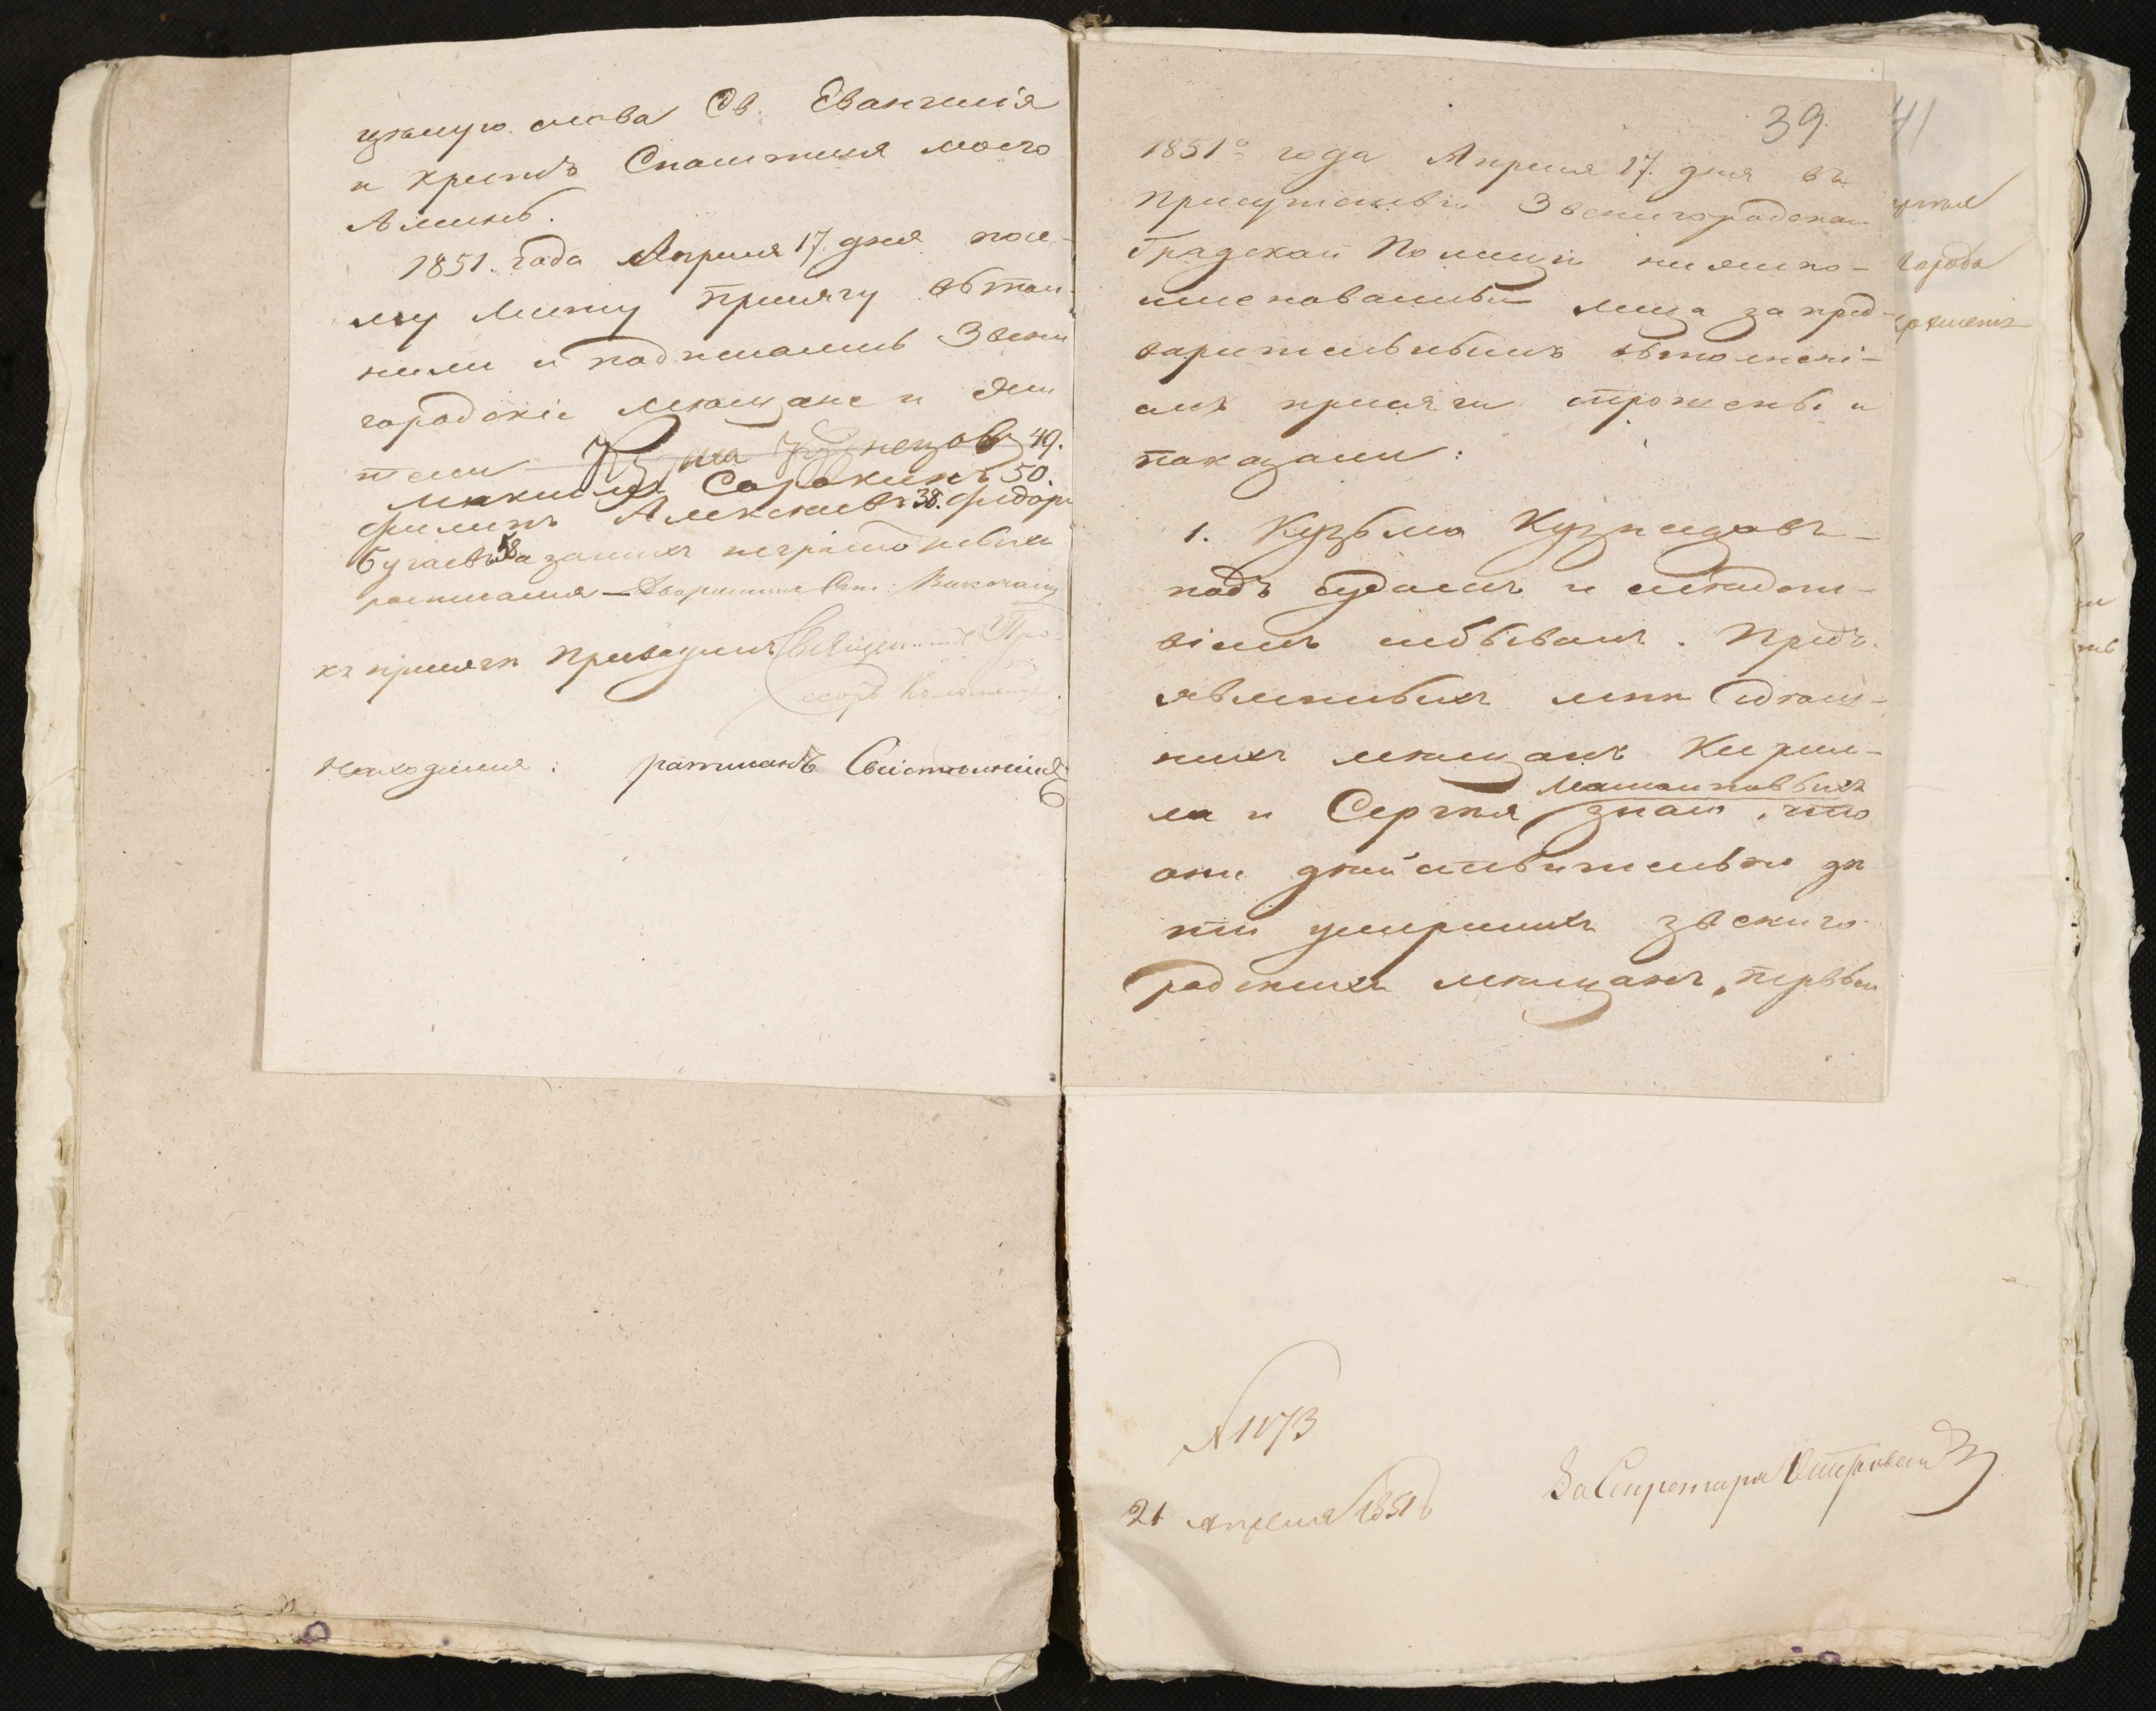 цѣлую слова Св. Евангелія
и крестъ Спасителя моего
Аминь.
1851. года Апреля 17. дня по се-
му листу присягу выпол-
нили и подписались Звени
городскіе мѣщане и жи
тели Кузма Кузнецовъ 49.
Максимъ Сорокинъ 50.
Филипъ Алексѣевъ 38. Федоръ
Бугаевъ 58 а за нихъ неграмотныхъ
росписался — Дворянинъ
къ присяги приводилъ Священникъ
Находился: ратманъ
39
41
1851го года Апреля 17. дня въ
присутствіи Звенигородской
Градской Полиціи нижепо-
именованныи лица за пред-
варительнымъ выполнені-
емъ присяги спрошены и
показали:
1. Кузьма Кузнецовъ —
подъ судомъ и слѣдст-
віемъ небывалъ. Предъ-
явленныхъ мнѣ здѣш-
нихъ мѣщанъ Кирил-
ла и Сергѣя знаю, что
они дѣйствительно дѣ
ти умершихъ Звениго-
родскихъ мѣщанъ, первый
города
N 1173
21 Апреля 1851
За Секретаря